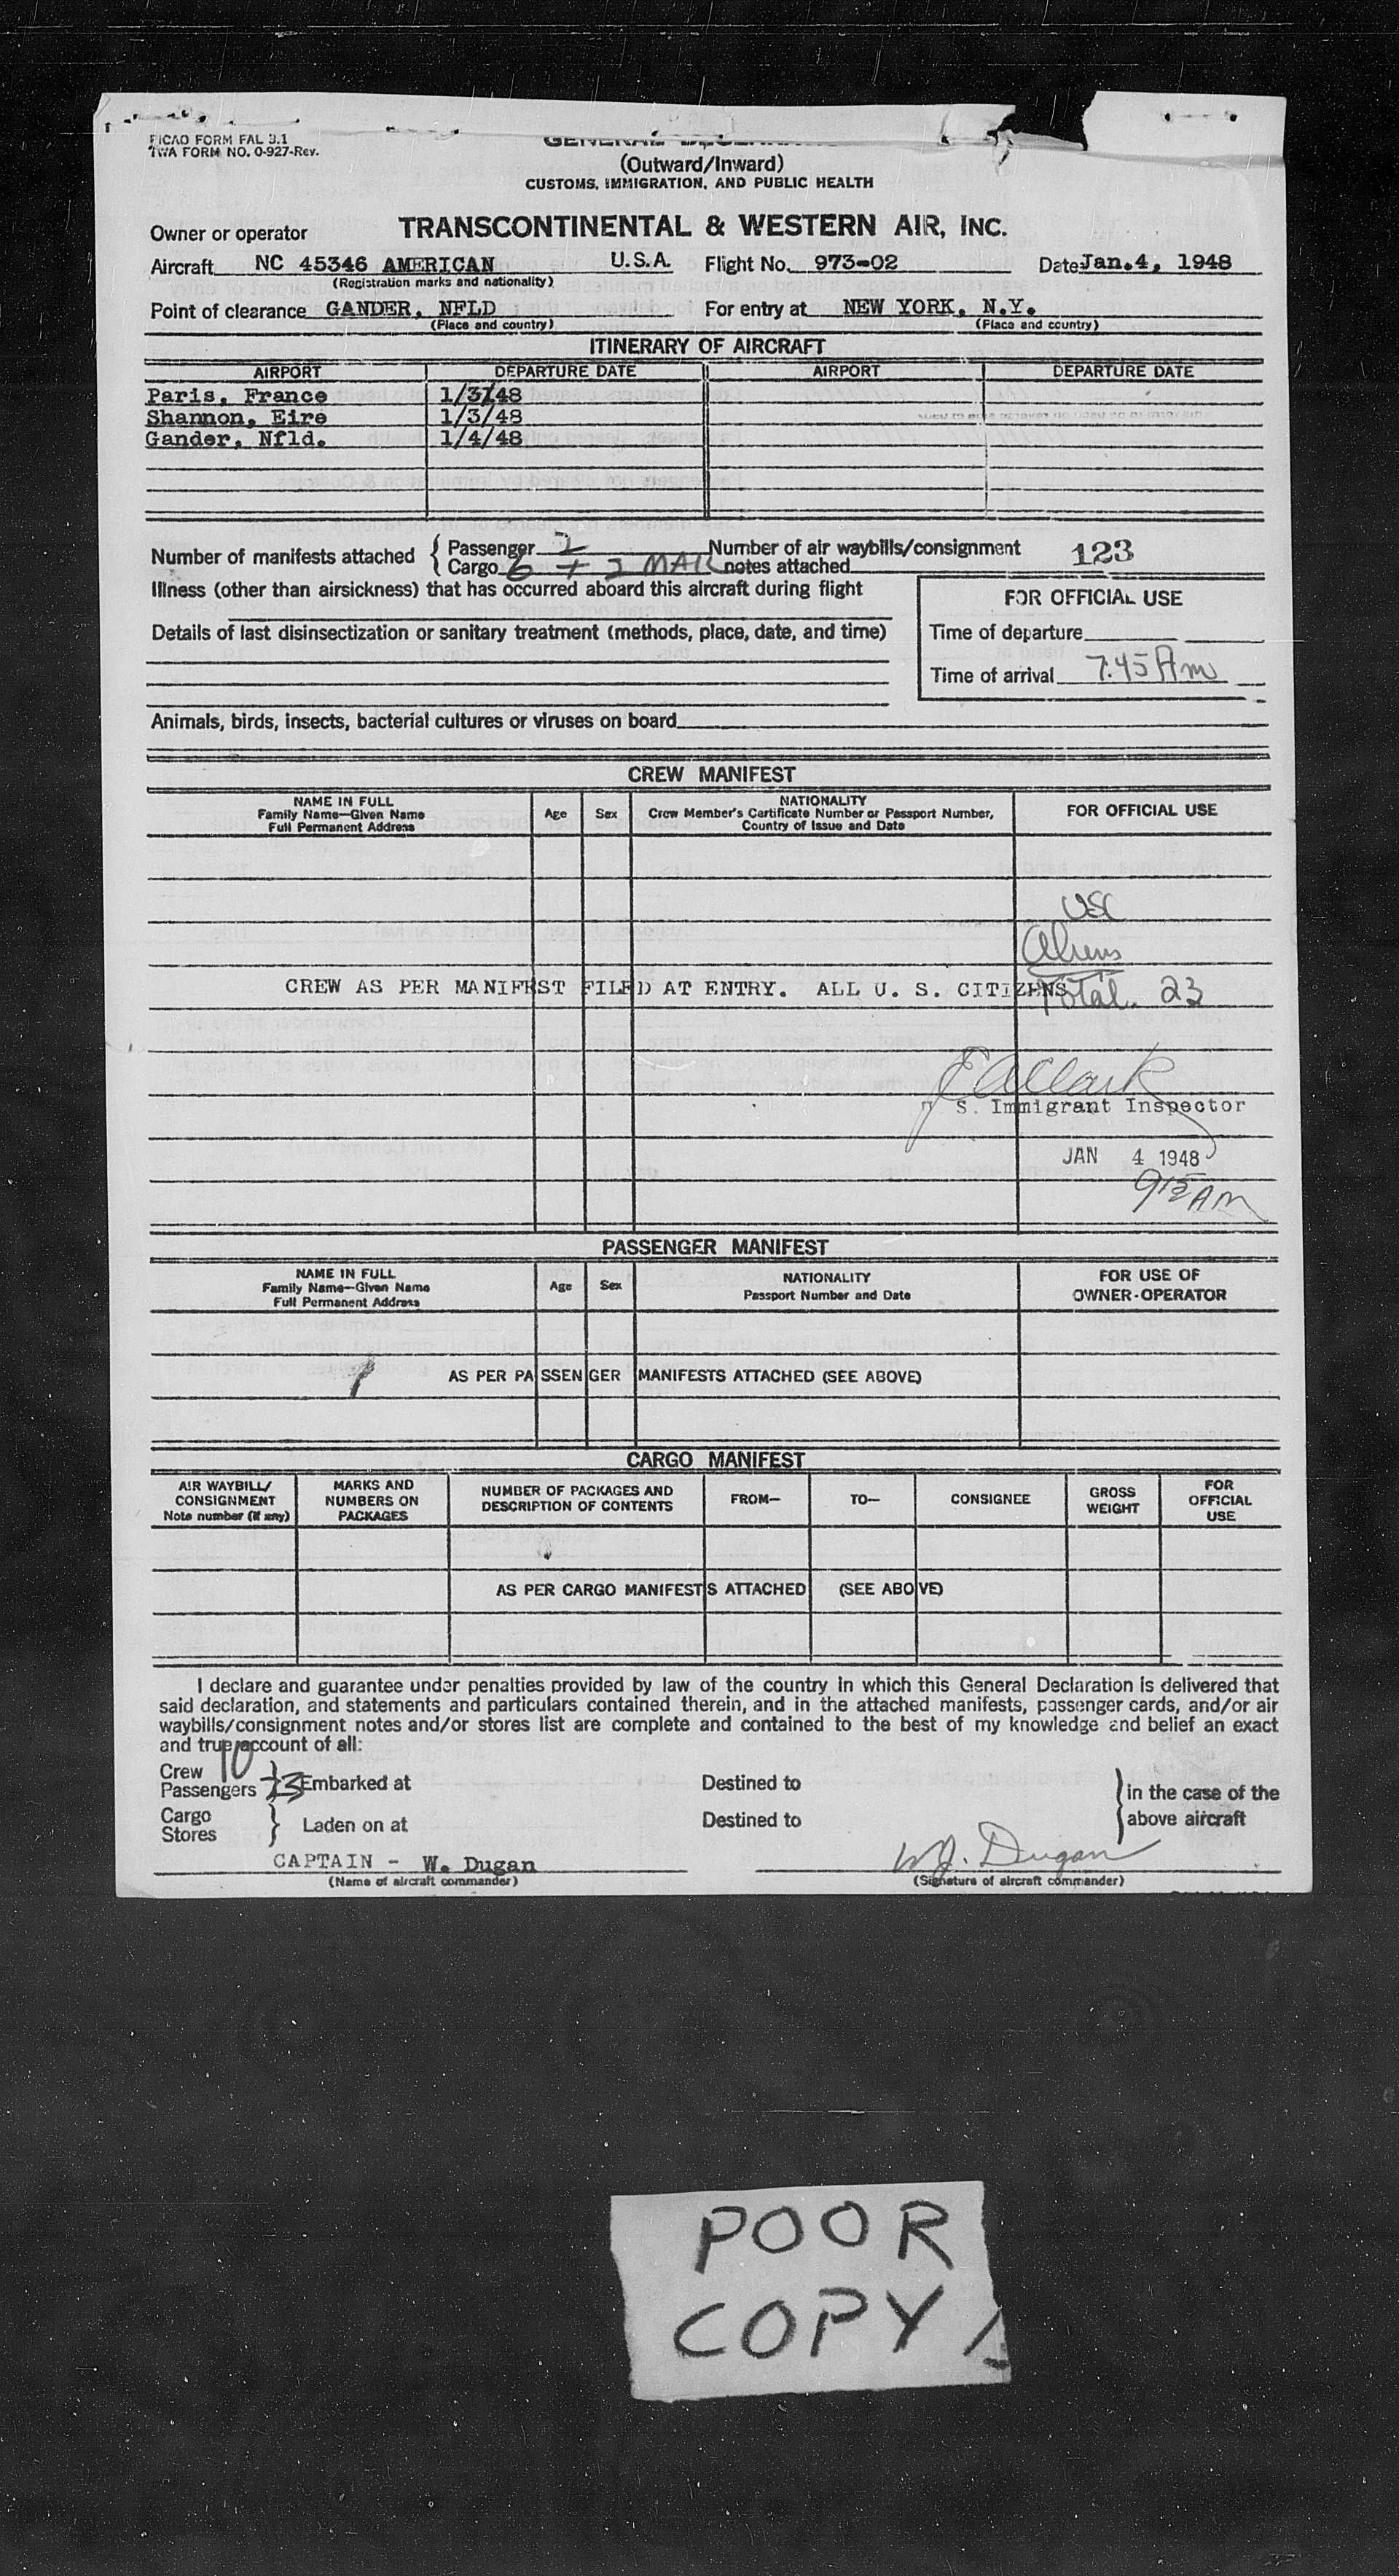 PICAO FORM FAL 3.1
TWA FORM NO. 0-927-Rev.
GENERAL
(Outward/Inward)
CUSTOMS, IMMIGRATION, AND PUBLIC HEALTH
Owner or operator TRANSCONTINENTAL & WESTERN AIR, INC.
Aircraft NC 45346 AMERICAN U.S.A. Flight No. 973-02 Date Jan.4, 1948
(Registration marks and nationality)
Point of clearance GANDER, NFLD For entry at NEW YORK, N.Y.
(Place and country) (Place and country)
ITINERARY OF AIRCRAFT
AIRPORT DEPARTURE DATE AIRPORT DEPARTURE DATE
Paris, France 1/3/48
Shannon, Eire 1/3/48
Gander, Nfld. 1/4/48
Number of manifests attached { Passenger 2 Number of air waybills/consignment 123
{ Cargo 6 + 2 MAIL notes attached
Illness (other than airsickness) that has occurred aboard this aircraft during flight
FOR OFFICIAL USE
Details of last disinsectization or sanitary treatment (methods, place, date, and time)
Time of departure
Time of arrival 7.45 Am
Animals, birds, insects, bacterial cultures or viruses on board
CREW MANIFEST
NAME IN FULL
Family Name—Given Name
Full Permanent Address
Age Sex
NATIONALITY
Crew Member's Certificate Number or Passport Number,
Country of Issue and Date
FOR OFFICIAL USE
USC
Aliens
CREW AS PER MANIFEST FILED AT ENTRY. ALL U. S. CITIZENS
Total. 23
E A Clark
S. Immigrant Inspector
JAN 4 1948
915 AM
PASSENGER MANIFEST
NAME IN FULL
Family Name—Given Name
Full Permanent Address
Age Sex
NATIONALITY
Passport Number and Date
FOR USE OF
OWNER-OPERATOR
AS PER PASSENGER MANIFESTS ATTACHED (SEE ABOVE)
CARGO MANIFEST
AIR WAYBILL/
CONSIGNMENT
Note number (if any)
MARKS AND
NUMBERS ON
PACKAGES
NUMBER OF PACKAGES AND
DESCRIPTION OF CONTENTS
FROM— TO— CONSIGNEE
GROSS
WEIGHT
FOR
OFFICIAL
USE
AS PER CARGO MANIFESTS ATTACHED (SEE ABOVE)
I declare and guarantee under penalties provided by law of the country in which this General Declaration is delivered that
said declaration, and statements and particulars contained therein, and in the attached manifests, passenger cards, and/or air
waybills/consignment notes and/or stores list are complete and contained to the best of my knowledge and belief an exact
and true account of all:
Crew 10
Passengers } 23 Embarked at Destined to } in the case of the
Cargo
Stores } Laden on at Destined to } above aircraft
CAPTAIN - W. Dugan W.J. Dugan
(Name of aircraft commander) (Signature of aircraft commander)
POOR
COPY